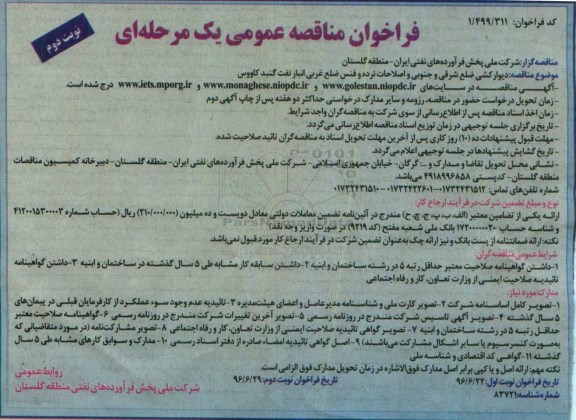 کد فراخوان: ۱/۴۹۹/۳۱۱
فراخوان مناقصه عمومی یک مرحله‌ای
نوبت دوم
مناقصه‌گزار: شرکت ملی پخش فرآورده‌های نفتی ایران - منطقه گلستان
موضوع مناقصه: دیوارکشی ضلع شرقی و جنوبی و اصلاحات نرده و فنس ضلع غربی انبار نفت گنبد کاووس
-آگهی مناقصه در سایت‌های www.golestan.niopdc.ir و www.monaghese.niopdc.ir و www.iets.mporg.ir درج شده است.
- زمان تحویل درخواست حضور در مناقصه، رزومه و سایر مدارک درخواستی حداکثر دو هفته پس از چاپ آگهی دوم
- زمان اخذ اسناد مناقصه پس از اطلاع‌رسانی از سوی شرکت به مناقصه‌گران واجد شرایط.
- تاریخ برگزاری جلسه توجیهی در زمان توزیع اسناد مناقصه اطلاع‌رسانی می‌گردد.
-مهلت قبول پیشنهادات ده (۱۰) روز کاری پس از آخرین مهلت تحویل اسناد به مناقصه‌گران تائید صلاحیت شده.
- تاریخ گشایش پیشنهادها در جلسه توجیهی اعلام می‌گردد.
- نشانی محل تحویل تقاضا و مدارک و ... گرگان- خیابان جمهوری اسلامی- شرکت ملی پخش فرآورده‌های نفتی ایران- منطقه گلستان- دبیرخانه کمیسیون مناقصات
منطقه گلستان - کدپستی ۴۹۱۸۹۹۶۸۵۸ می‌باشد.
شماره تلفن‌های تماس: ۰۱۷۳۲۴۳۱۵۱۲-۰۱۷۳۲۴۲۲۶۰۱-۰۱۷۳۲۴۳۱۵۱۰
نوع و مبلغ تضمین شرکت در فرآیند ارجاع کار:
ارائه یکی از تضامین معتبر (الف، ب، پ، ج، چ، ح) مندرج در آئین‌نامه تضمین معاملات دولتی معادل دویست و ده میلیون (۲۱۰/۰۰۰/۰۰۰) ریال (حساب شماره ۴۱۲۰۰۱۵۳۰۰۰۳
و شناسه حساب ۱۷۲۰۰۰۰۰۲۰ بانک ملی شعبه مفتح (کد ۹۲۱۹) در صورت واریز وجه نقد)
نکته: ارائه ضمانتنامه از پست بانک و نیز ارائه چک به‌عنوان تضمین شرکت در فرآیند ارجاع کار مورد قبول نمی‌باشد.
شرایط عمومی مناقصه‌گران:
۱-داشتن گواهینامه صلاحیت معتبر حداقل رتبه ۵ در رشته ساختمان و ابنیه ۲-داشتن سابقه کار مشابه طی ۵ سال گذشته در ساختمان و ابنیه ۳-داشتن گواهینامه
تائیدیه صلاحیت ایمنی از وزارت تعاون، کار و رفاه اجتماعی
مدارک مورد نیاز:
۱-تصویر کامل اساسنامه شرکت ۲-تصویر کارت ملی و شناسنامه مدیرعامل و اعضای هیئت‌مدیره ۳-تائیدیه عدم وجود سوء عملکرد از کارفرمایان قبلی در پیمان‌های
۵ سال گذشته ۴-تصویر آگهی تاسیس شرکت مندرج در روزنامه رسمی ۵-تصویر آخرین تغییرات شرکت مندرج در روزنامه رسمی ۶-گواهینامه صلاحیت معتبر
حداقل رتبه ۵ در رشته ساختمان و ابنیه ۷- تصویر گواهی تائیدیه صلاحیت ایمنی از وزارت تعاون، کار و رفاه اجتماعی ۸-تصویر مشارکت‌نامه (در مورد متقاضیانی که
به‌صورت کنسرسیوم یا سایر اشکال مشارکت می‌باشند) ۹-اصل گواهی تائیدیه امضاء صادره از دفتر اسناد رسمی ۱۰-مدارک و سوابق کارهای مشابه طی ۵ سال
گذشته ۱۱-گواهی کد اقتصادی و شناسه ملی
نکته مهم: ارائه اصل و یا کپی برابر اصل مدارک فوق‌الاشاره در زمان تحویل مدارک فوق الزامی است.
تاریخ فراخوان نوبت اول: ۹۶/۶/۲۲
تاریخ فراخوان نوبت دوم: ۹۶/۶/۲۹
شماره شناسه: ۸۳۷۲۱
روابط عمومی
شرکت ملی پخش فرآورده‌های نفتی منطقه گلستان